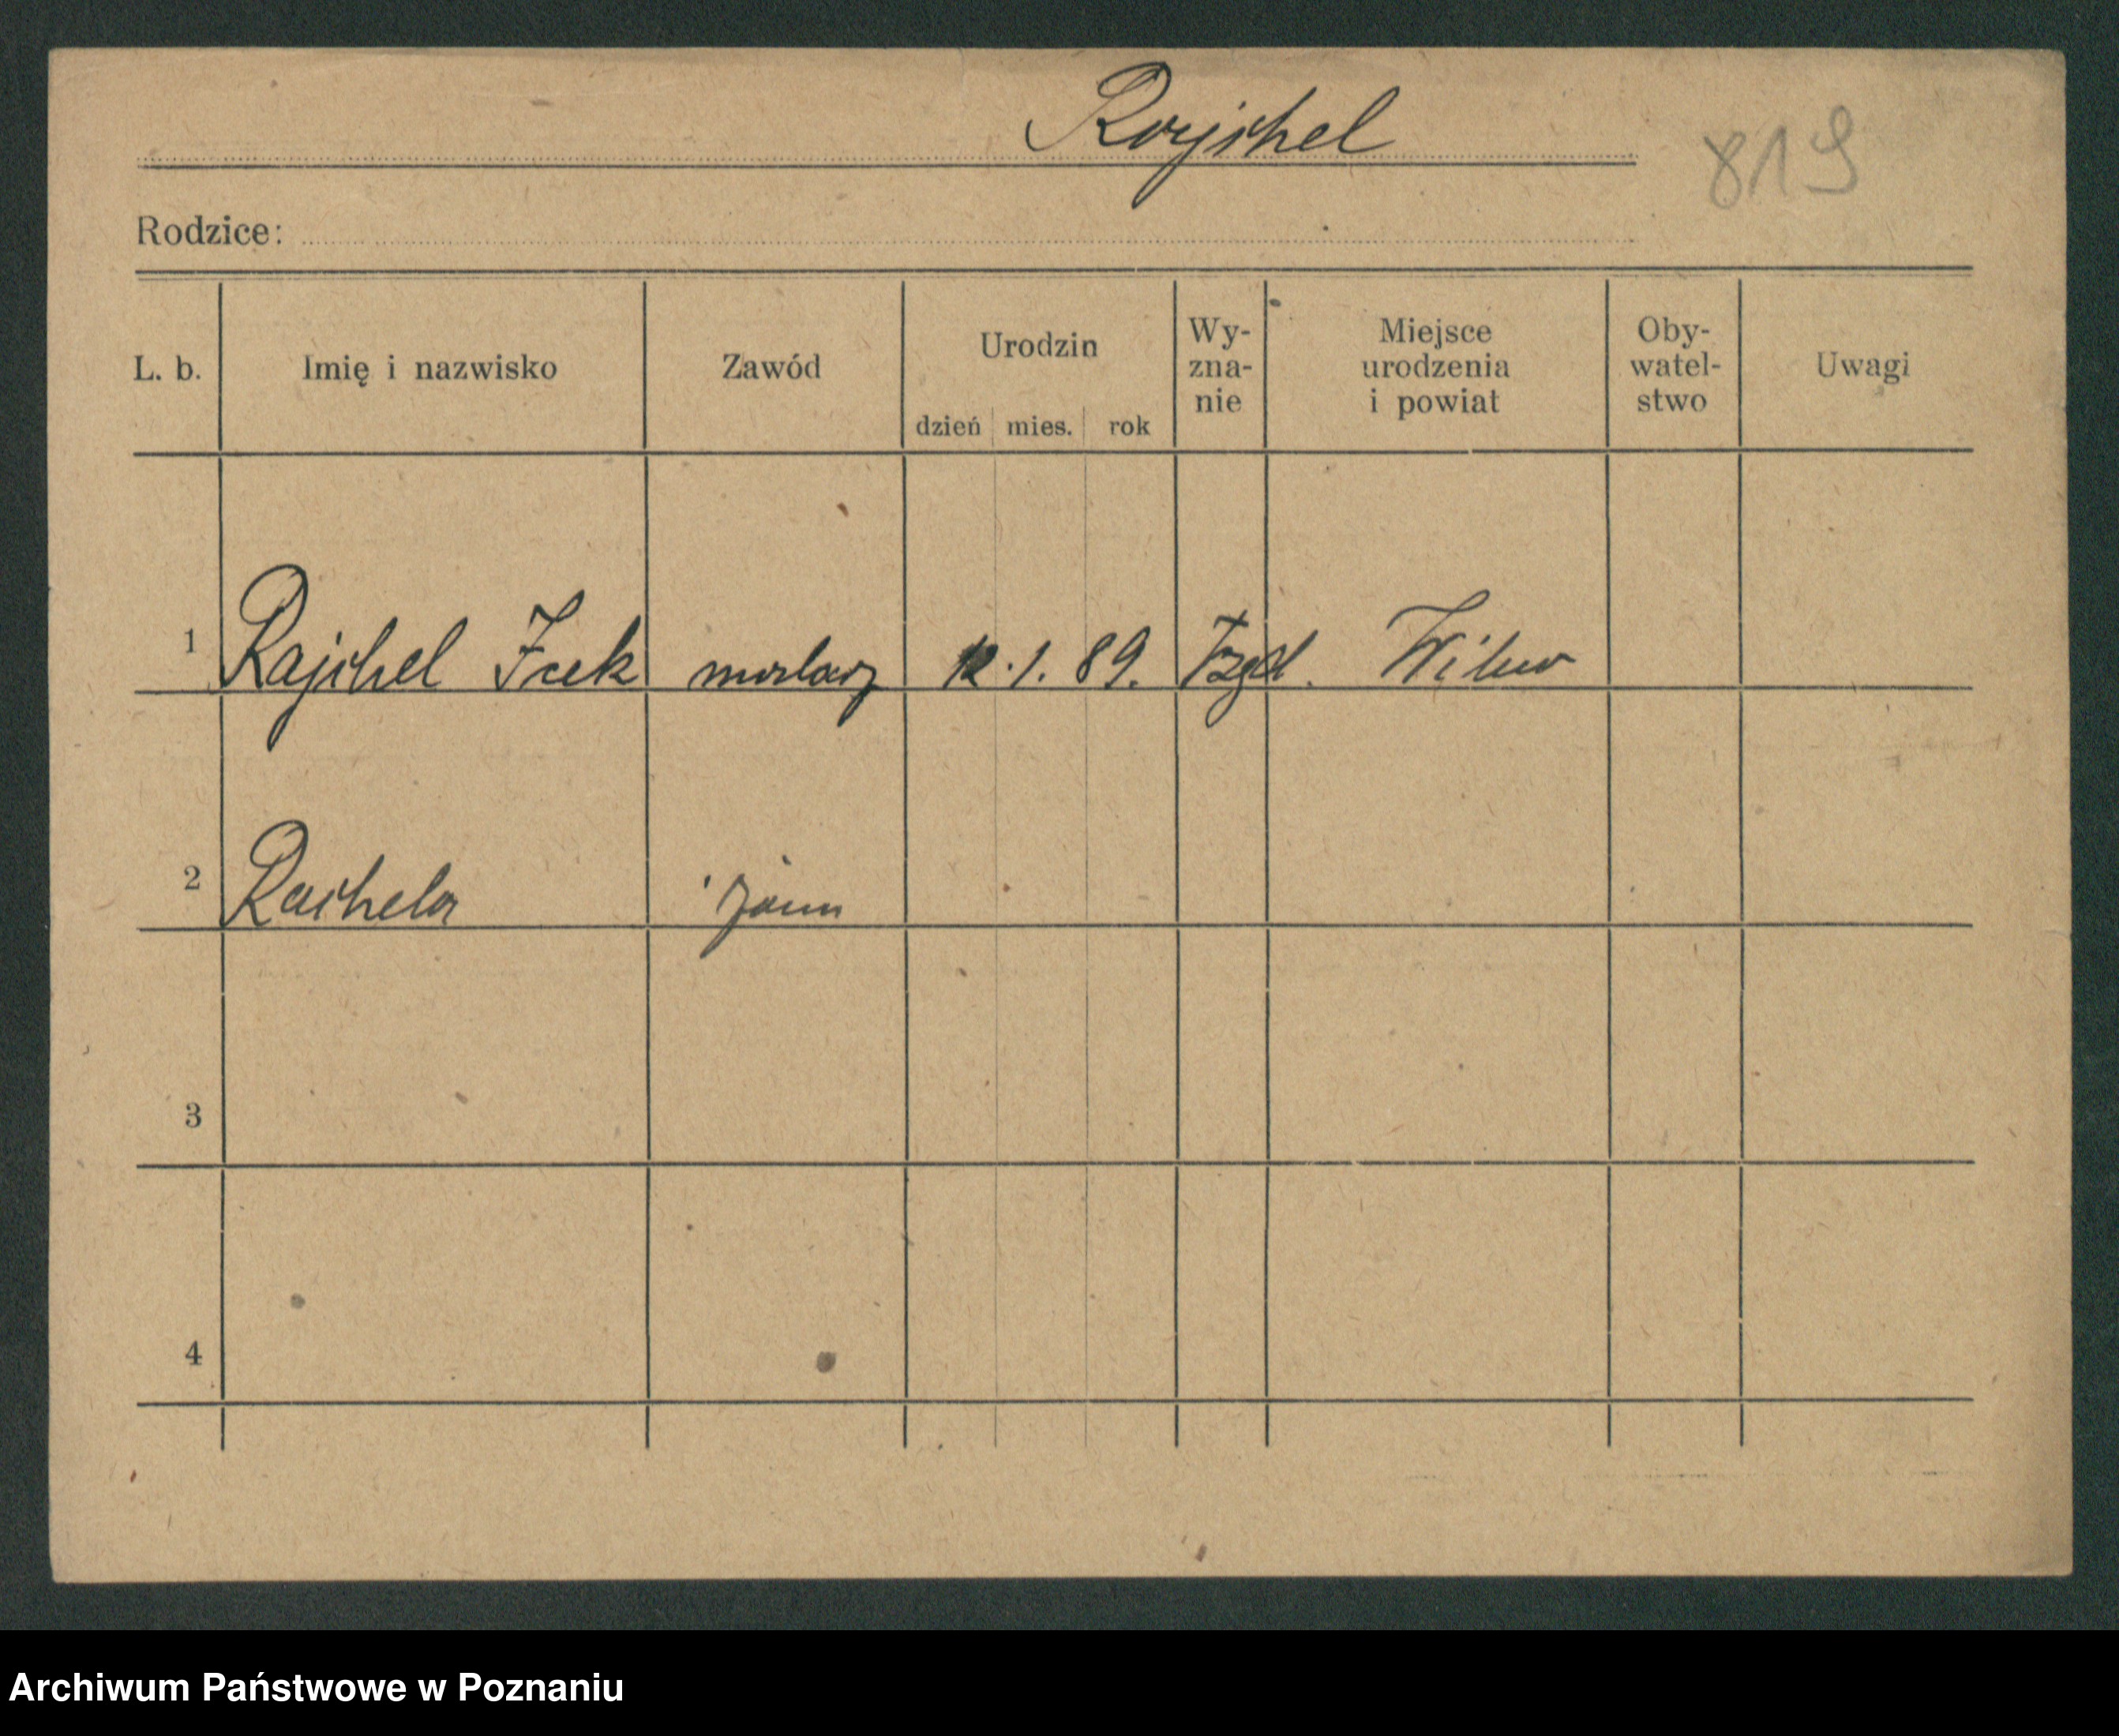 Rajchel
819
Rodzice:
L. b. Imię i nazwisko Zawód Urodzin dzień mies. rok Wy- zna- nie Miejsce urodzenia i powiat Oby- watel- stwo Uwagi
1 Rajchel Icek malarz 12. 1. 89. Wilno
2 Rachela żona
3
4
Archiwum Państwowe w Poznaniu